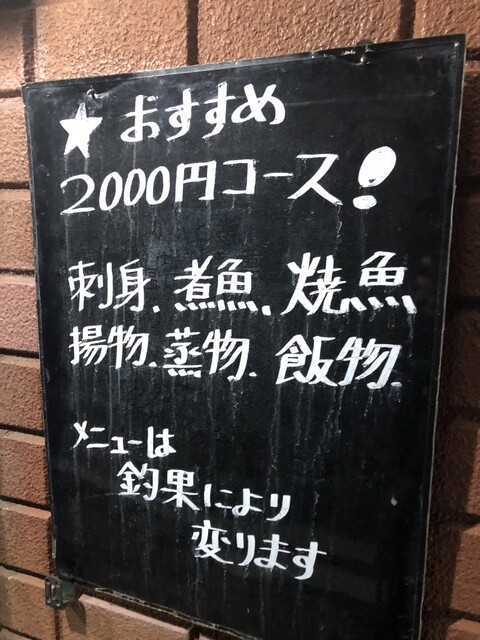 ★おすすめ
2000円コース!
刺身、煮魚、焼魚
揚物、蒸物、飯物、
メニューは
釣果により
変ります